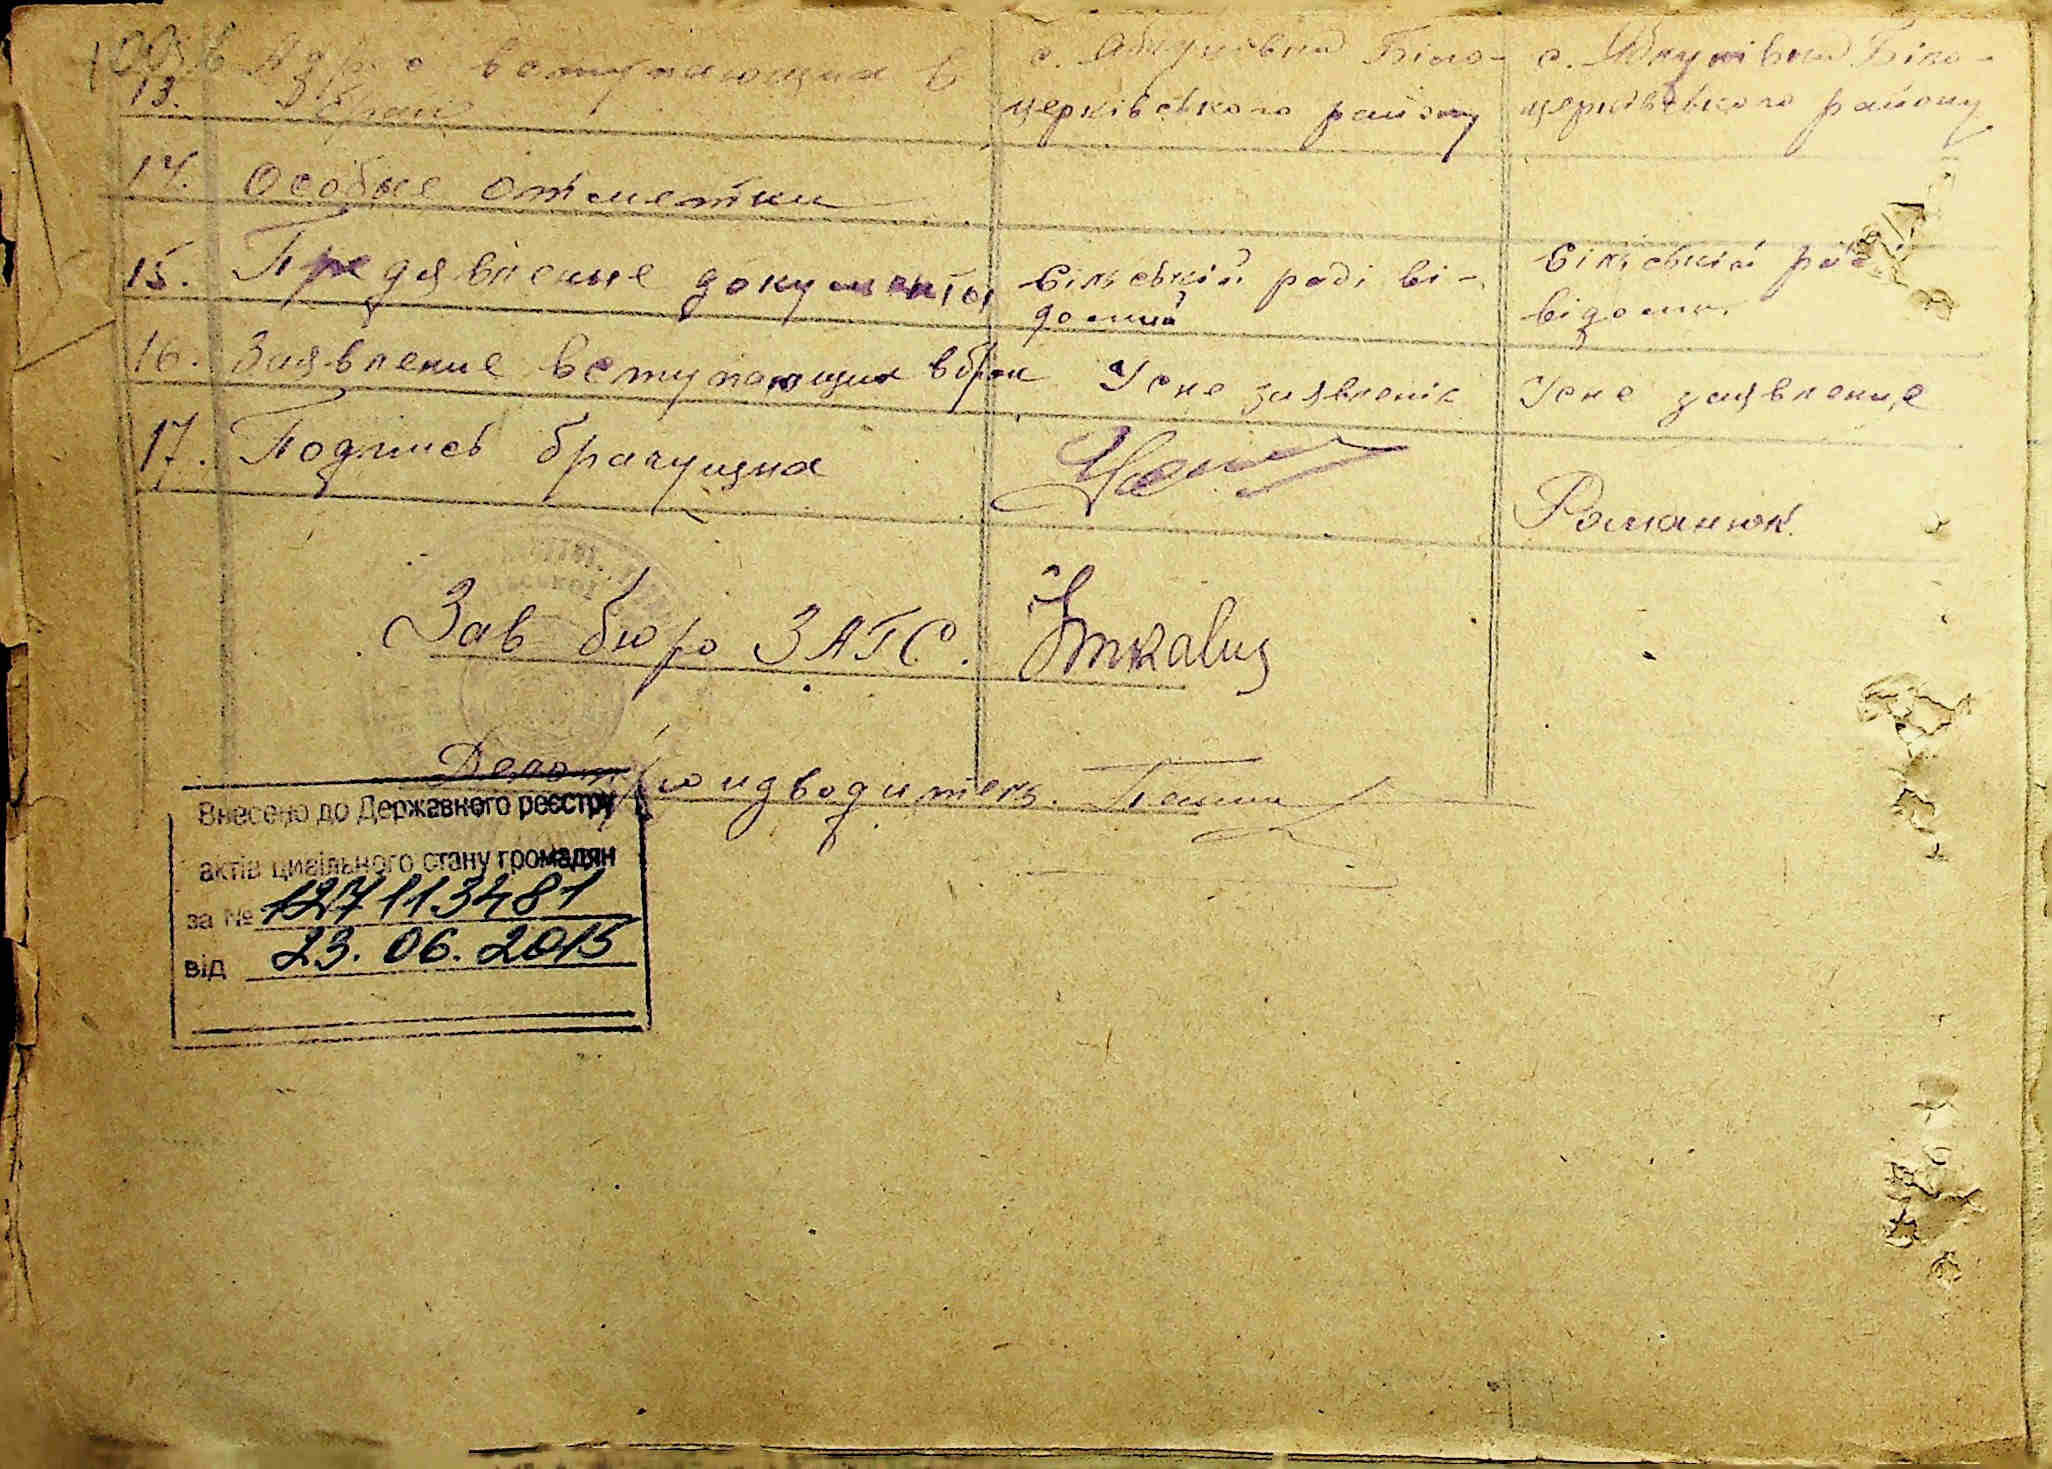 13. Адрес вступающих в с. Яблунівка Біло- с. Яблунівка Біло-
брак церківського району церківського району
14. Особые отметки
15. Предявленые документы сільській раді ві- сільській раді
домий відома
16. Заявление вступающих в брак Усне заявленіє Усне заявление
17. Подпись брачущихся
Романюк
Зав бюро ЗАГС.
Делопроизводитель.
Внесено до Державного реєстру
актів цивільного стану громадян
за № 127113481
від 23.06.2015